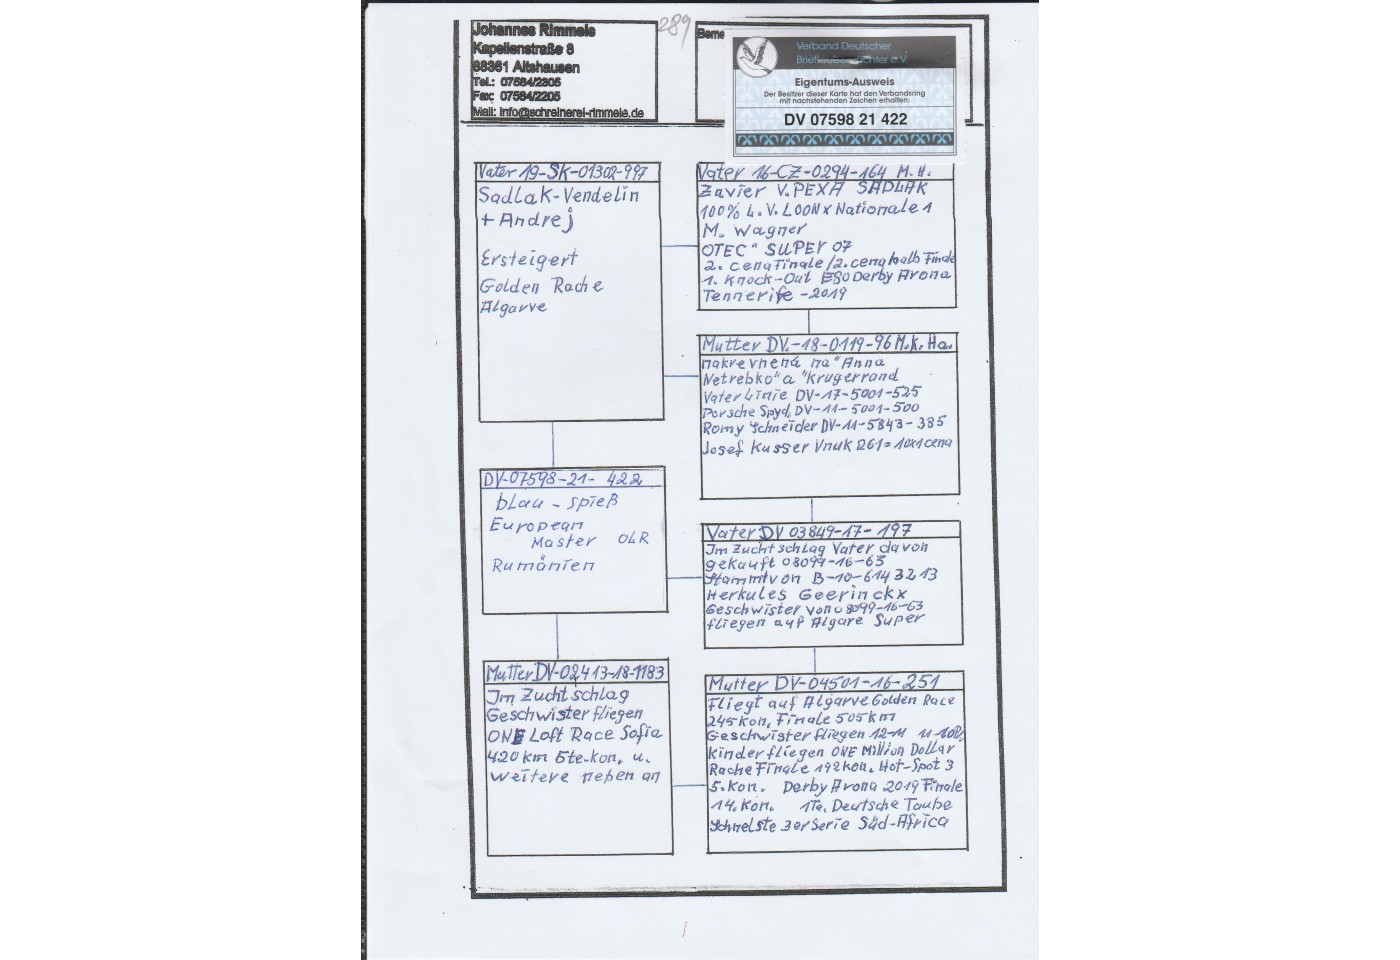 Johannes Rimmele
Kapellenstraße 8
88361 Altshausen
Tel.: 07584/2305
Fax: 07584/2205
Mail: info@schreinerei-rimmele.de
289
Verband Deutscher
Brieftaubenzüchter e.V.
Eigentums-Ausweis
Der Besitzer dieser Karte hat den Verbandsring
mit nachstehenden Zeichen erhalten:
DV 07598 21 422
Vater 19-SK-01302-997
Sadlak-Vendelin
+ Andrej
Ersteigert
Golden Rache
Algarve
Vater 16-CZ-0294-164 M.H.
Zavier V. PEXA SADLAK
100% L.V. LOON x Nationale 1
M. Wagner
OTEC " SUPER 07
2. cena Finale/2. cena halb Finale
1. Knock-Out ESO Derby Arona
Tennerife -2019
Mutter DV.-18-0119-96 M.K. Ha.
nakrevnená na "Anna
Netrebko" a "Krugerrand
Vater Linie DV-17-5001-525
Porsche Spyd. DV-11-5001-500
Romy Schneider DV-11-5843-385
Josef Kusser Vnuk 261=10x1cena
DV-07598-21- 422
blau - spieß
European
Master OLR
Rumänien
Vater DV 03849-17- 197
Im Zuchtschlag Vater davon
gekauft 08099-16-63
Stammt von B-10-6143213
Herkules Geerinckx
Geschwister von 08099-16-63
fliegen auf Algare Super
Mutter DV-02413-18-1183
Im Zuchtschlag
Geschwister fliegen
ONE Loft Race Sofia
420 km 5te.kon. u.
weitere neben an
Mutter DV-04501-16-251
Fliegt auf Algarve Golden Race
245 Kon, Finale 505 km
Geschwister fliegen 12-M
Kinder fliegen ONE Million Dollar
Rache Finale 192 Kon. Hot-Spot 3
5. Kon. Derby Arona 2019 Finale
14. Kon. 1Te. Deutsche Taube
Schnelste 3er Serie Süd-Africa